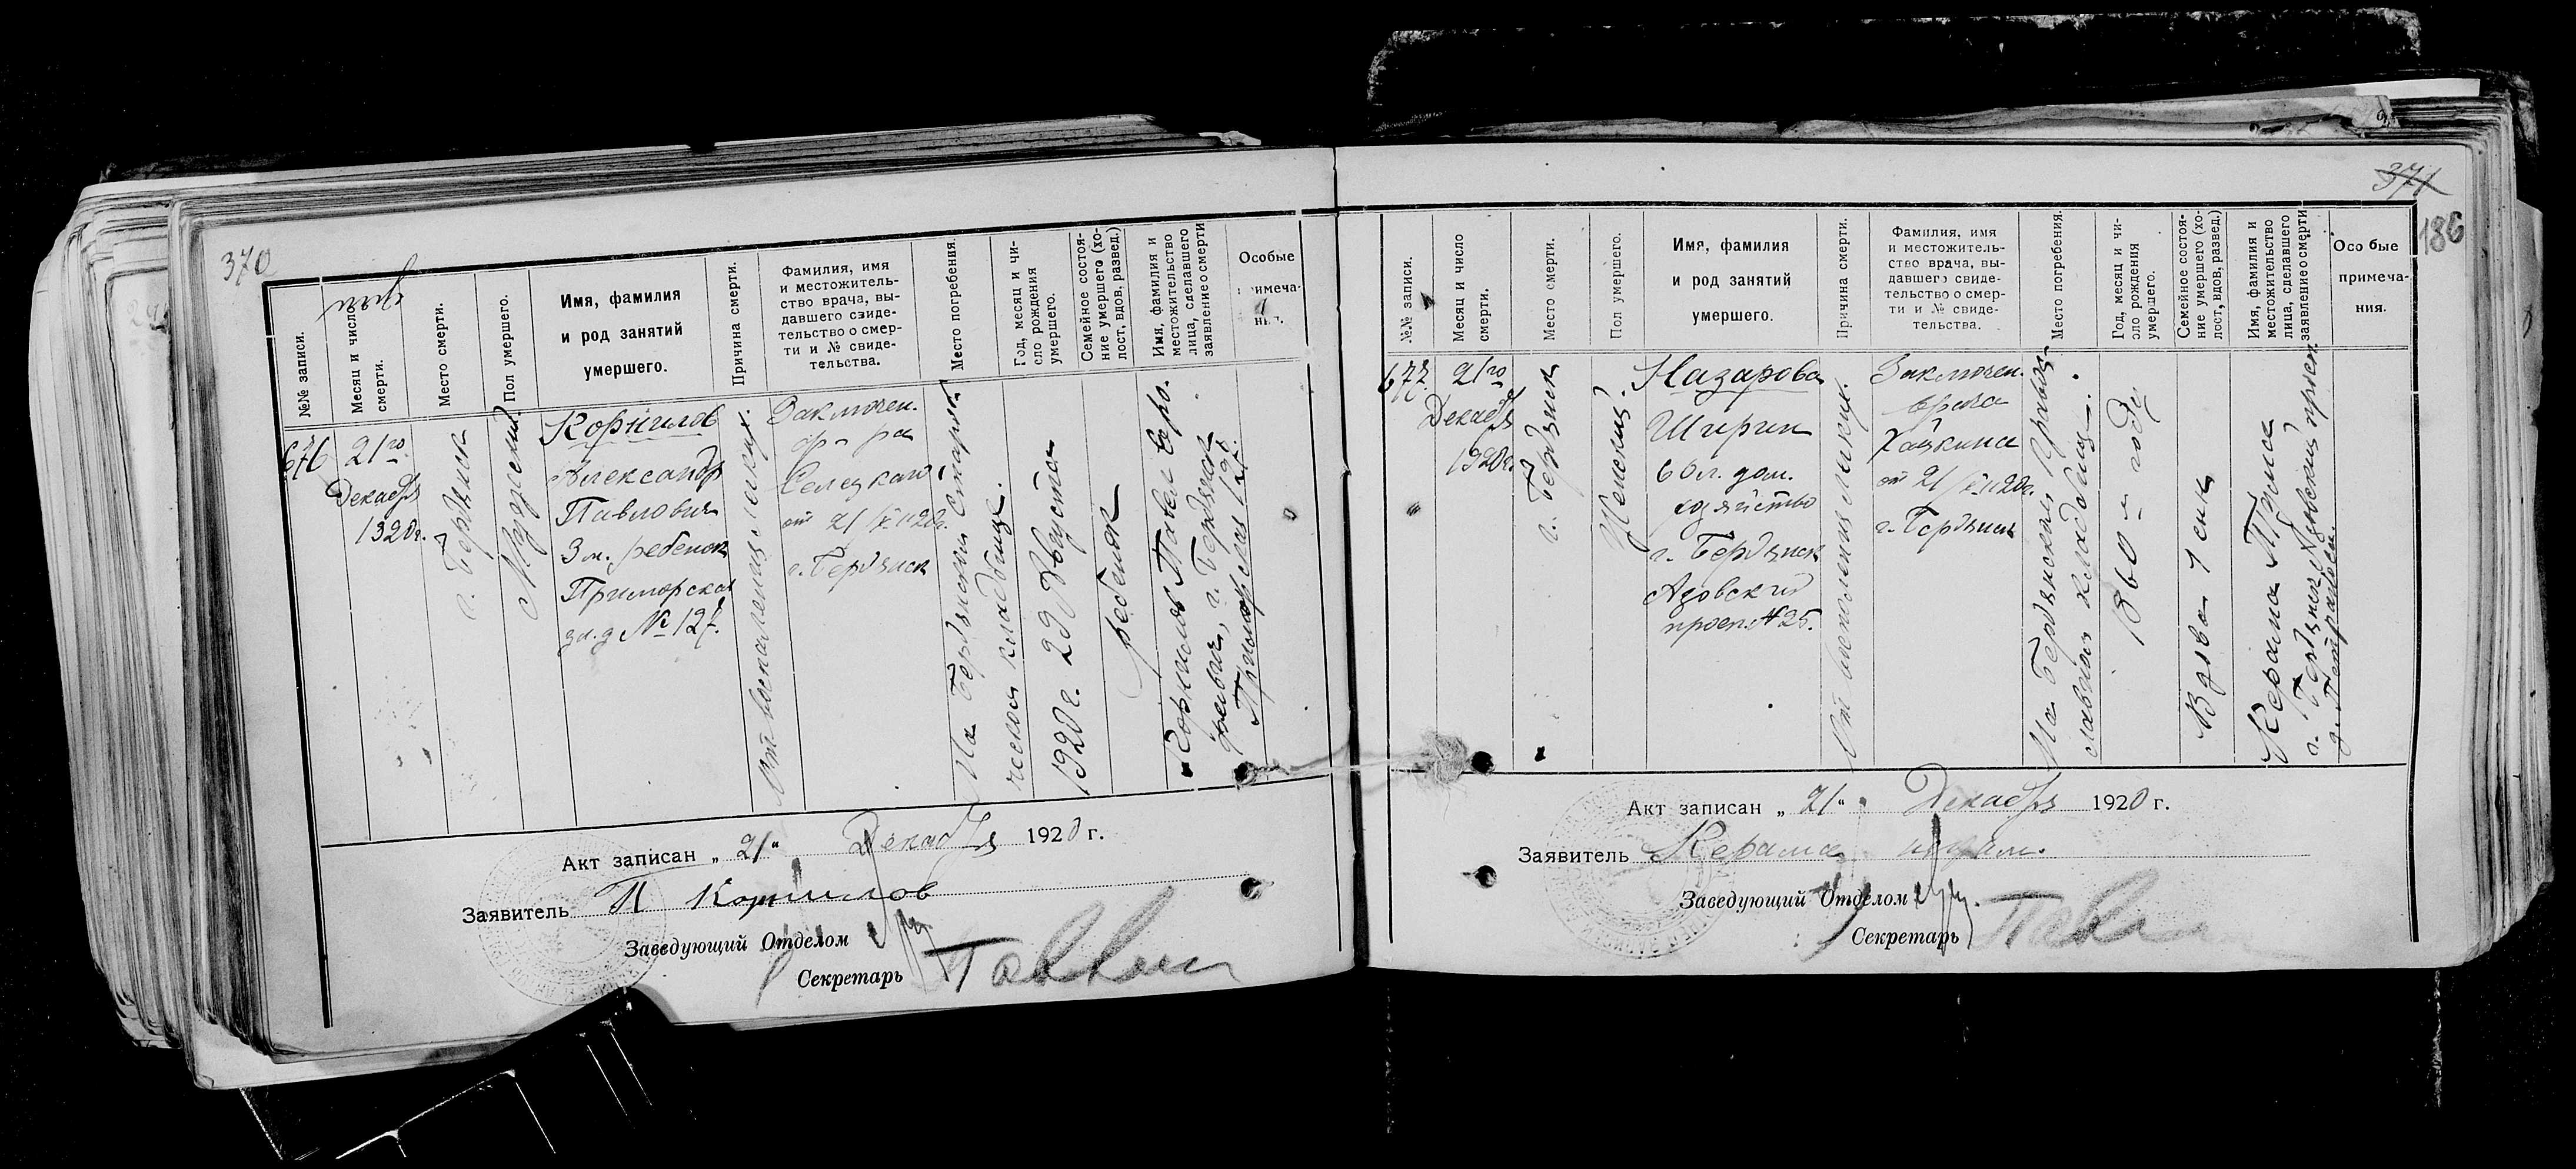 370
№№ записи.
Месяц и число
смерти.
Место смерти.
Пол умершего.
Имя, фамилия
и род занятий
умершего.
Причина смерти.
Фамилия, имя
и местожитель-
ство врача, вы-
давшего свиде-
тельство о смер-
ти и № свиде-
тельства.
Место погребения.
Год, месяц и чи-
сло рождения
умершего.
Семейное состоя-
ние умершего (хо-
лост, вдов, развед.)
Имя, фамилия и
местожительство
лица, сделавшего
заявление о смерти
Особые
примеча-
ния.
676
21го
Декабря
1920г.
г. Бердянск
Мужской.
Корнилов
Александр
Павлович
3 м. ребенок
Приморская
ул. д № 127.
От воспаления легких.
Заключен.
от 21/XII 20г.
г. Бердянск
На Бердянском
ческом кладбище.
1920 г. 29 Августа
ребенок
Корнилов Павел
г. Бердянск
Приморская 127.
Акт записан „ 21 “ Декабря 1920 г.
Заявитель П Корнилов
Заведующий Отделом
Секретарь
371
186
№№ записи.
Месяц и число
смерти.
Место смерти.
Пол умершего.
Имя, фамилия
и род занятий
умершего.
Причина смерти.
Фамилия, имя
и местожитель-
ство врача, вы-
давшего свиде-
тельство о смер-
ти и № свиде-
тельства.
Место погребения.
Год, месяц и чи-
сло рождения
умершего.
Семейное состоя-
ние умершего (хо-
лост, вдов, развед.)
Имя, фамилия и
местожительство
лица, сделавшего
заявление о смерти
Особые
примеча-
ния.
677.
21го
Декабря
1920г.
г. Бердянск
Женский.
Назарова
Ширин
60л. дом.
хозяйство
г. Бердянск
Азовский
просп. № 25.
От воспаления легких.
Заключен.
врача
Хацкина
от 21/XII 20г.
г. Бердянск
На Бердянском Правос-
лавном кладбище.
1860 м году
Вдова
Керама
г. Бердянск Азовский просп.
Акт записан „ 21 “ Декабря 1920 г.
Заявитель Керама
Заведующий Отделом
Секретарь